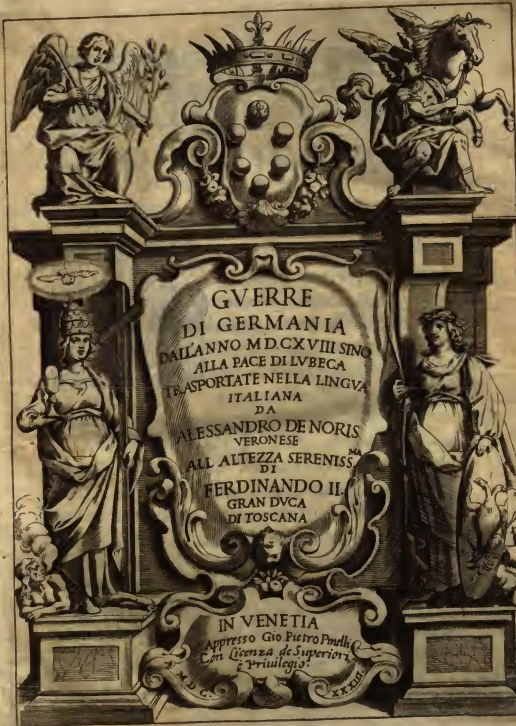 GVERRE
DI GERMANIA
DALL'ANNO M D.CXVIII SINO
ALLA PACE DI LVBECA
TRASPORTATE NELLA LINGVA
ITALIANA
DA
ALESSANDRO DE NORIS
VERONESE
ALL ALTEZZA SERENISS.MA
DI
FERDINANDO II
GRAN DVCA
DI TOSCANA
IN VENETIA
Appresso Gio. Pietro Pinelli
Con Licenza de Superiori,
è Privilegio.
M D C. XXXIII.